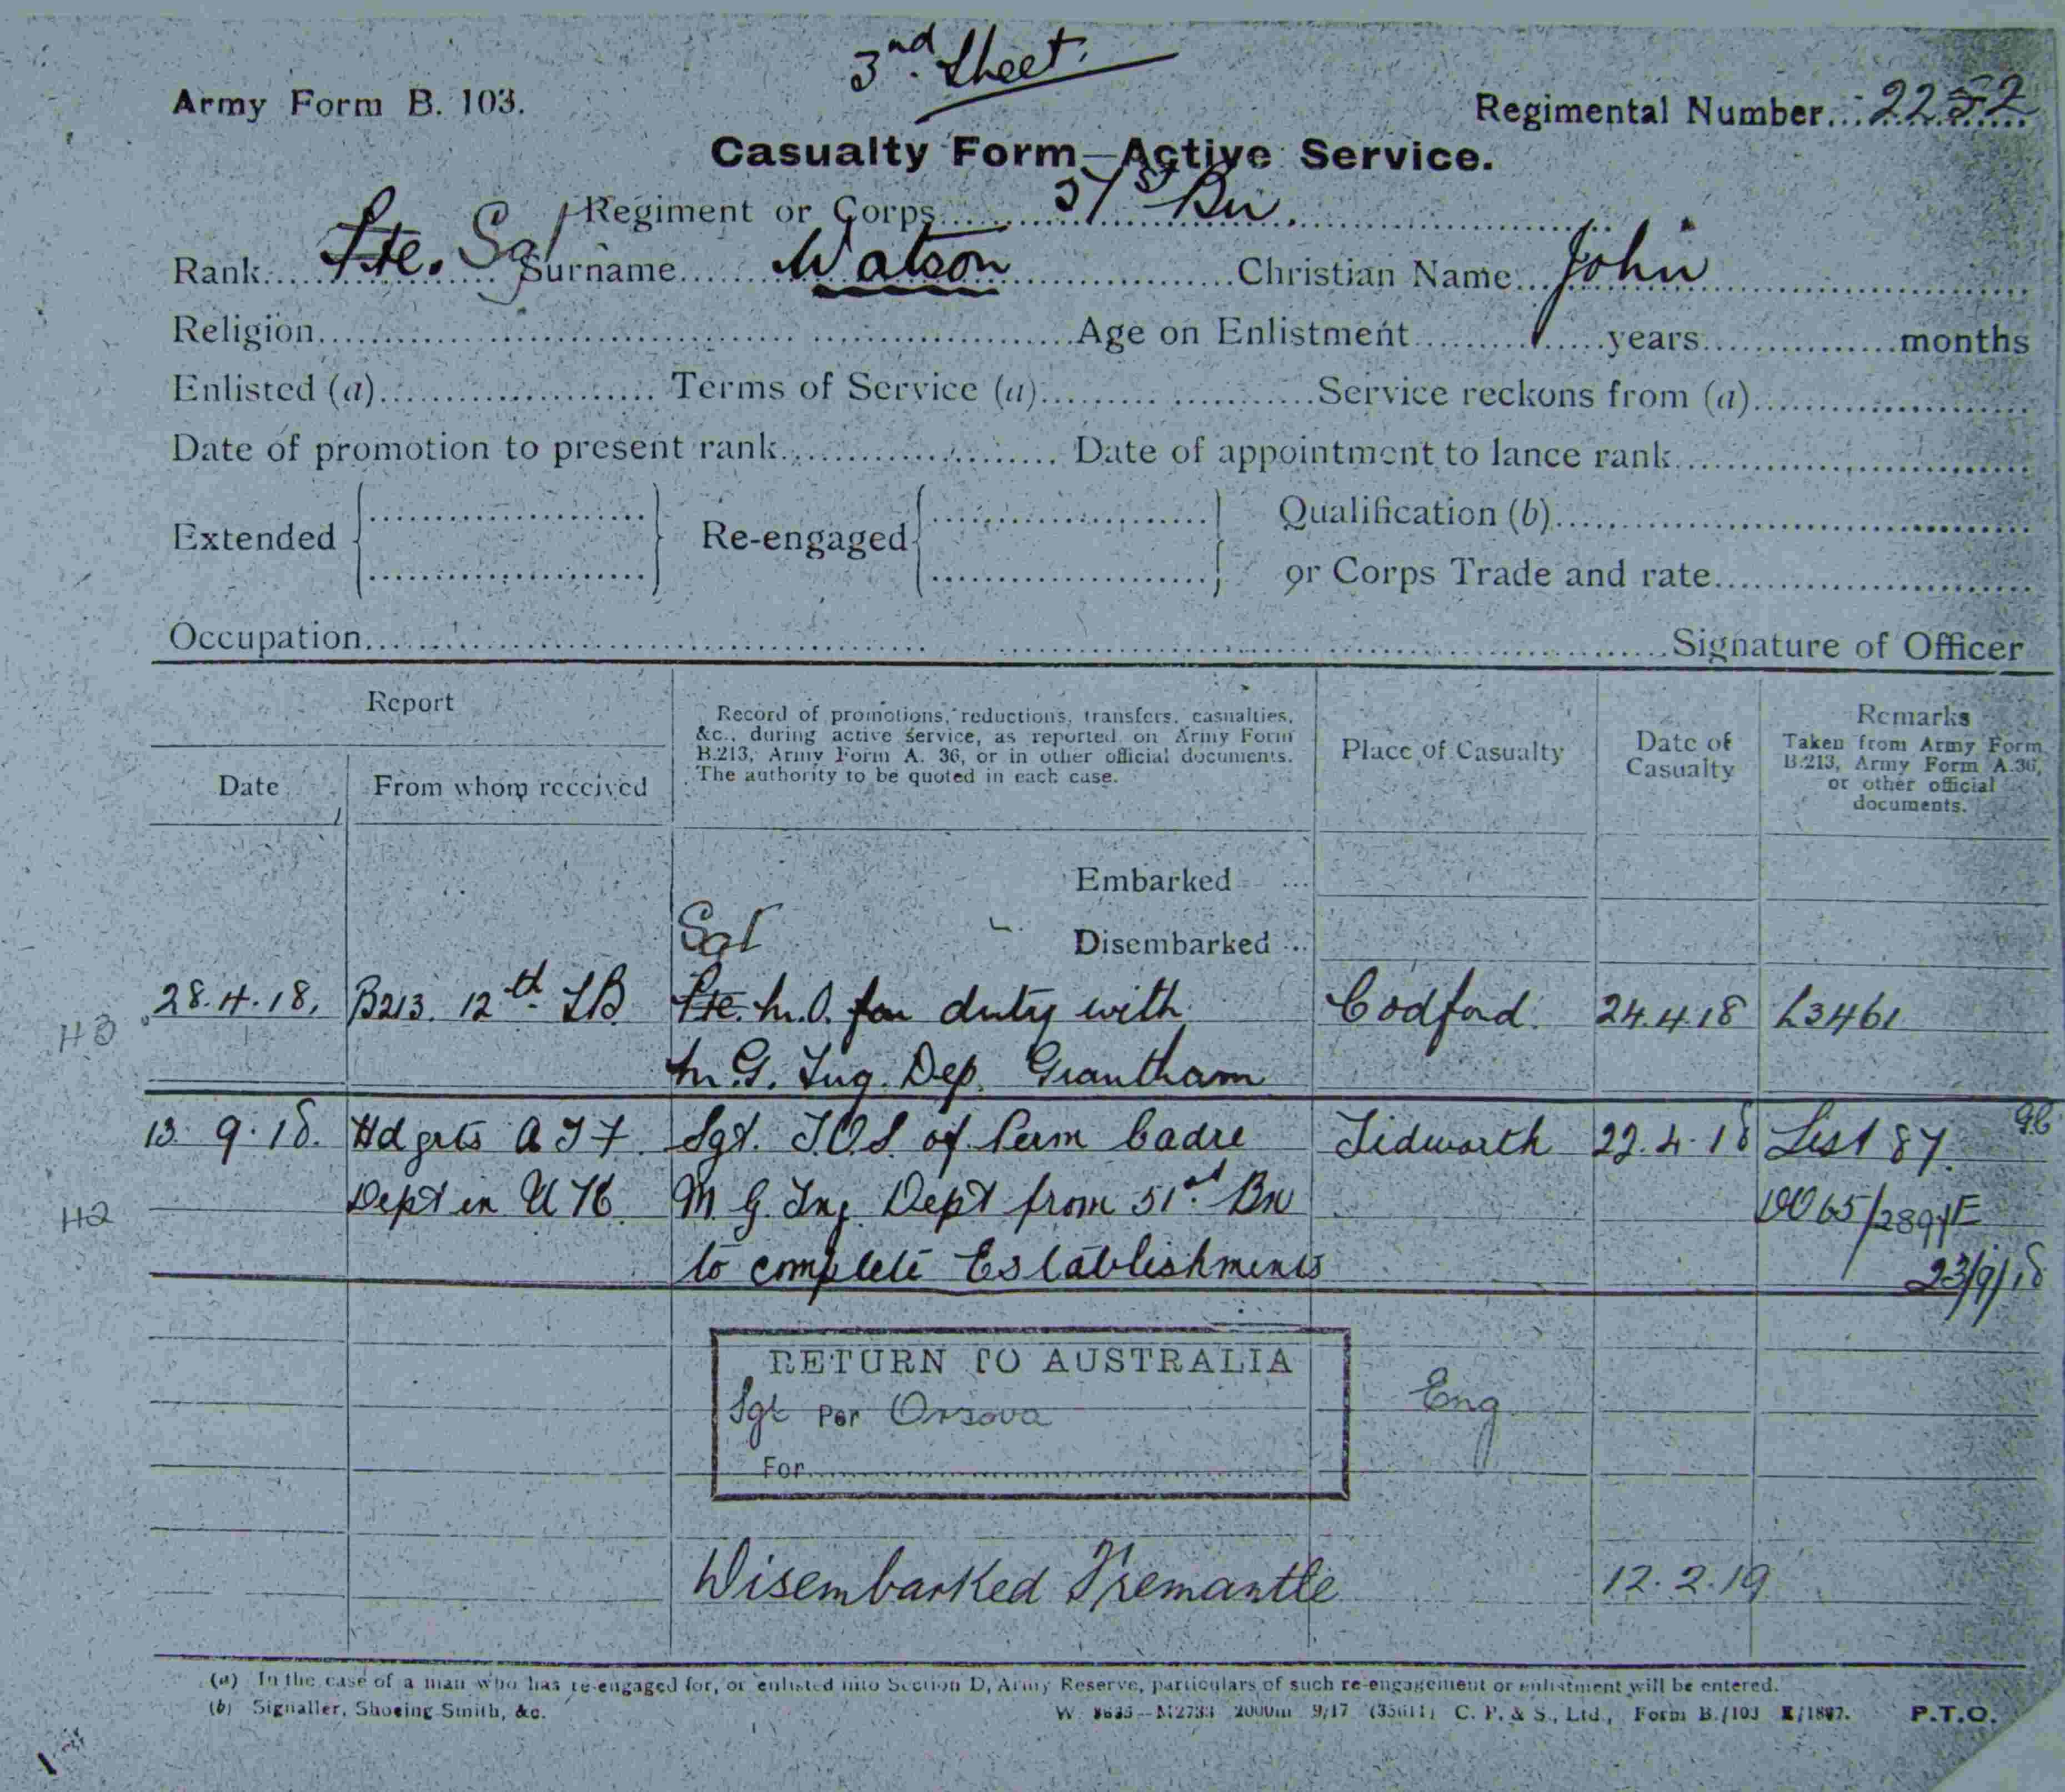 3nd Sheet.
Army Form B. 103.
Regimental Number 2252
Casualty Form—Active Service.
Regiment or Corps 51st Bn.
Rank Pte. Sgt Surname Watson Christian Name John
Religion Age on Enlistment years months
Enlisted (a) Terms of Service (a) Service reckons from (a)
Date of promotion to present rank Date of appointment to lance rank
Extended Re-engaged Qualification (b)
or Corps Trade and rate
Occupation Signature of Officer
Report
Date From whom received
Record of promotions, reductions, transfers, casualties,
&c., during active service, as reported on Army Form
B.213, Army Form A. 36, or in other official documents.
The authority to be quoted in each case.
Place of Casualty
Date of
Casualty
Remarks
Taken from Army Form
B.213, Army Form A.36,
or other official
documents.
Embarked ...
Sgt Disembarked ...
28.4.18. B213. 12th T.B. Pte. M.O. for duty with Codford. 24.4.18 L3461
H3
M.G. Tng. Dep. Grantham
13.9.18. Hdqrts A I F Sgt. T.O.S. of Perm Cadre Tidworth 22.4.18 List 87.
H2 Dept in U K. M. G. Tng. Dept from 51st Bn
to complete Establishments 23/9/18
RETURN TO AUSTRALIA
Sgt Per Orsova Eng
For
Disembarked Fremantle 12.2.19
(a) In the case of a man who has re-engaged for, or enlisted into Section D, Army Reserve, particulars of such re-engagement or enlistment will be entered.
(b) Signaller, Shoeing Smith, &c. C. P. & S., Ltd., Form B./103 P.T.O.